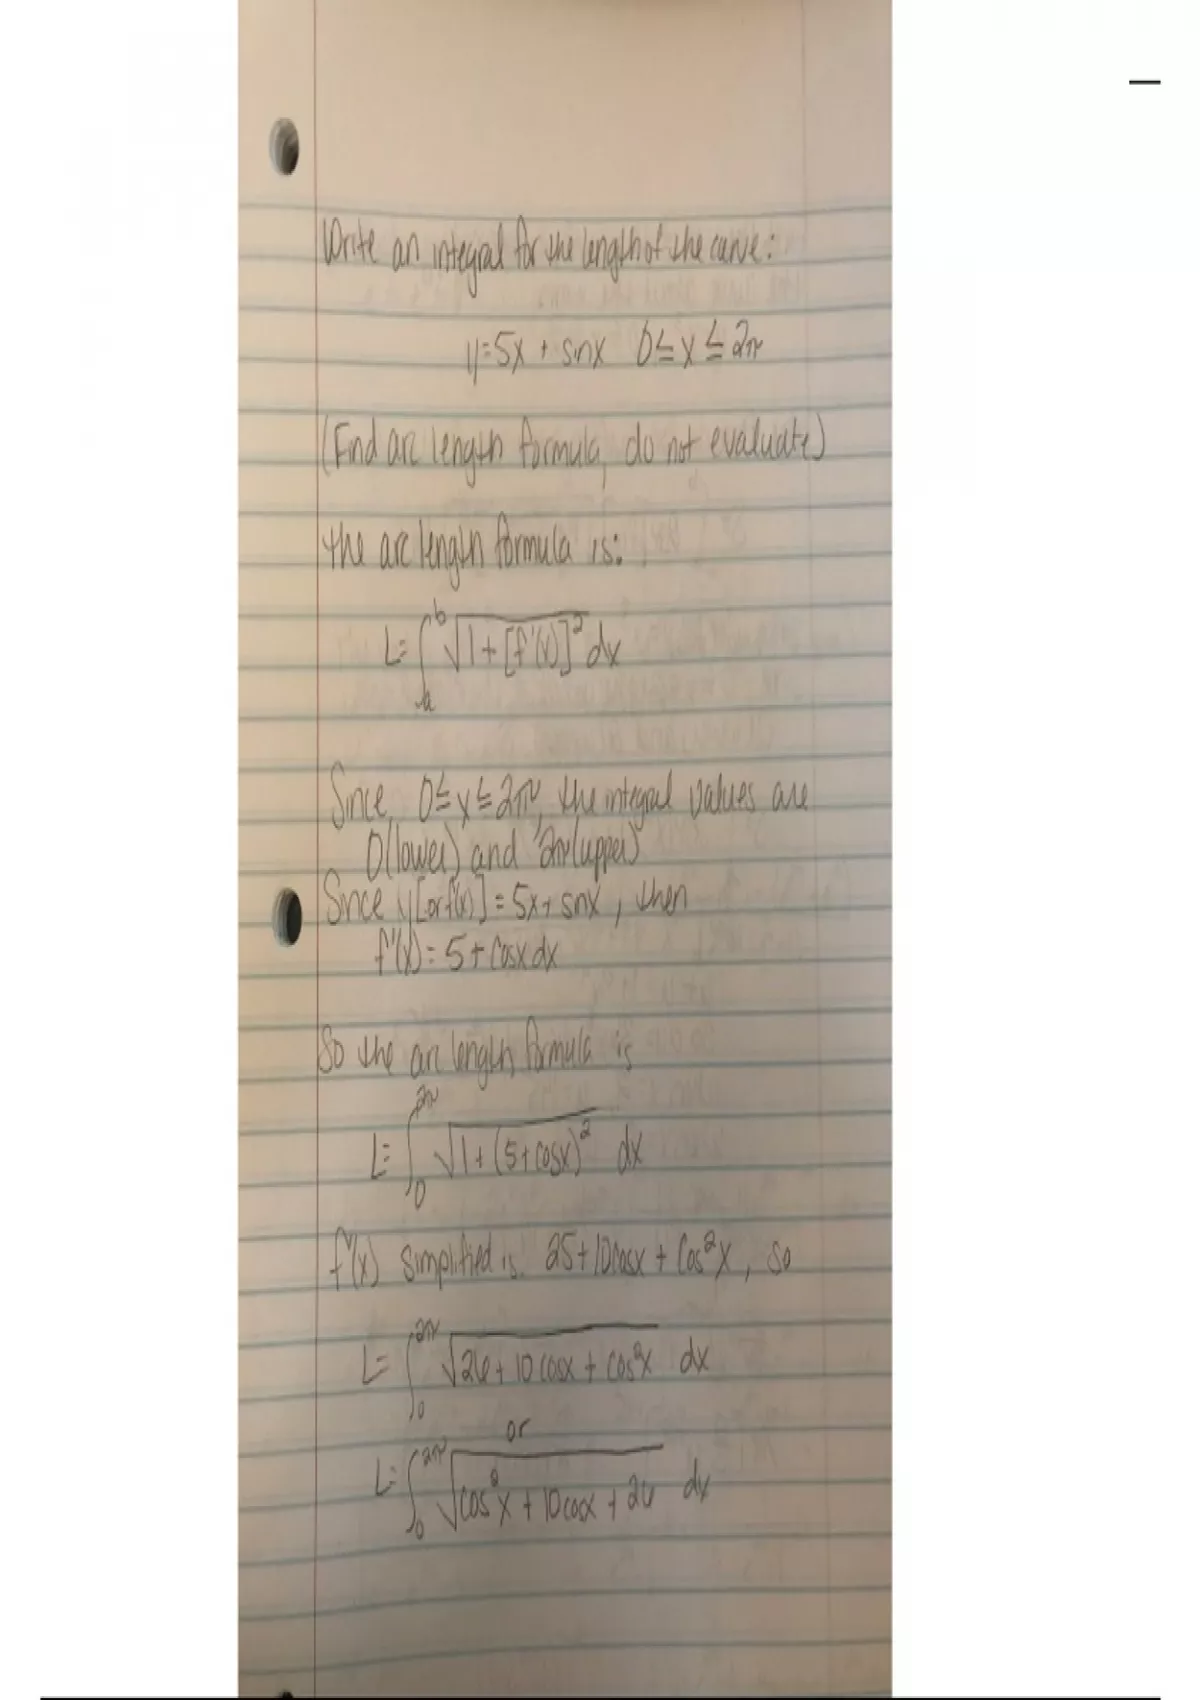 Write an integral for the length of the curve:
y=5x + sinx 0≤x≤2π
(Find arc length formula, do not evaluate)
the arc length formula is:
L=∫ₐᵇ√(1+[f'(x)]²) dx
Since 0≤x≤2π, the integral values are
0(lower) and 2π(upper)
Since y[orf(x)]=5x+sinx, then
f'(x)=5+cosxdx
So the arc length formula is
L=∫₀²π√(1+(5+cosx)²) dx
f'(x) simplified is 25+10cosx+cos²x, so
L=∫₀²π√(26+10cosx+cos²x) dx
or
L=∫₀²π√(cos²x+10cosx+26) dx